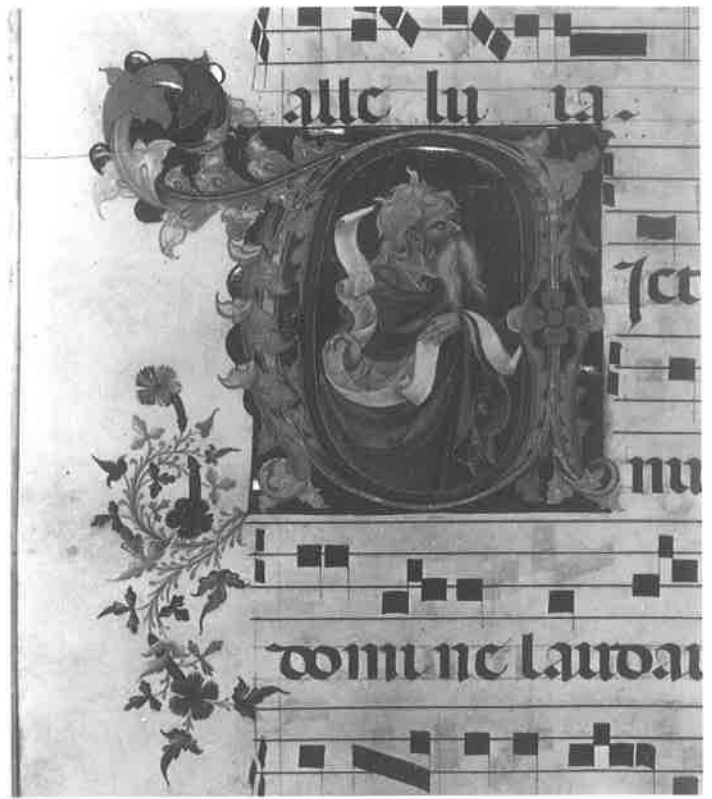 alle lu ia.
VIct
nu
domi ne laudau